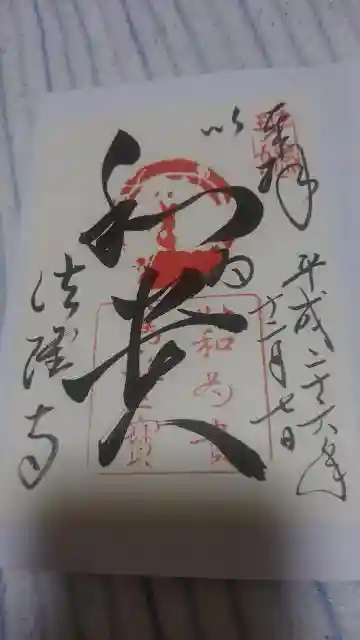 奉拝
平成二十六年
十二月七日
以和為貴
法隆寺
和為貴
寶